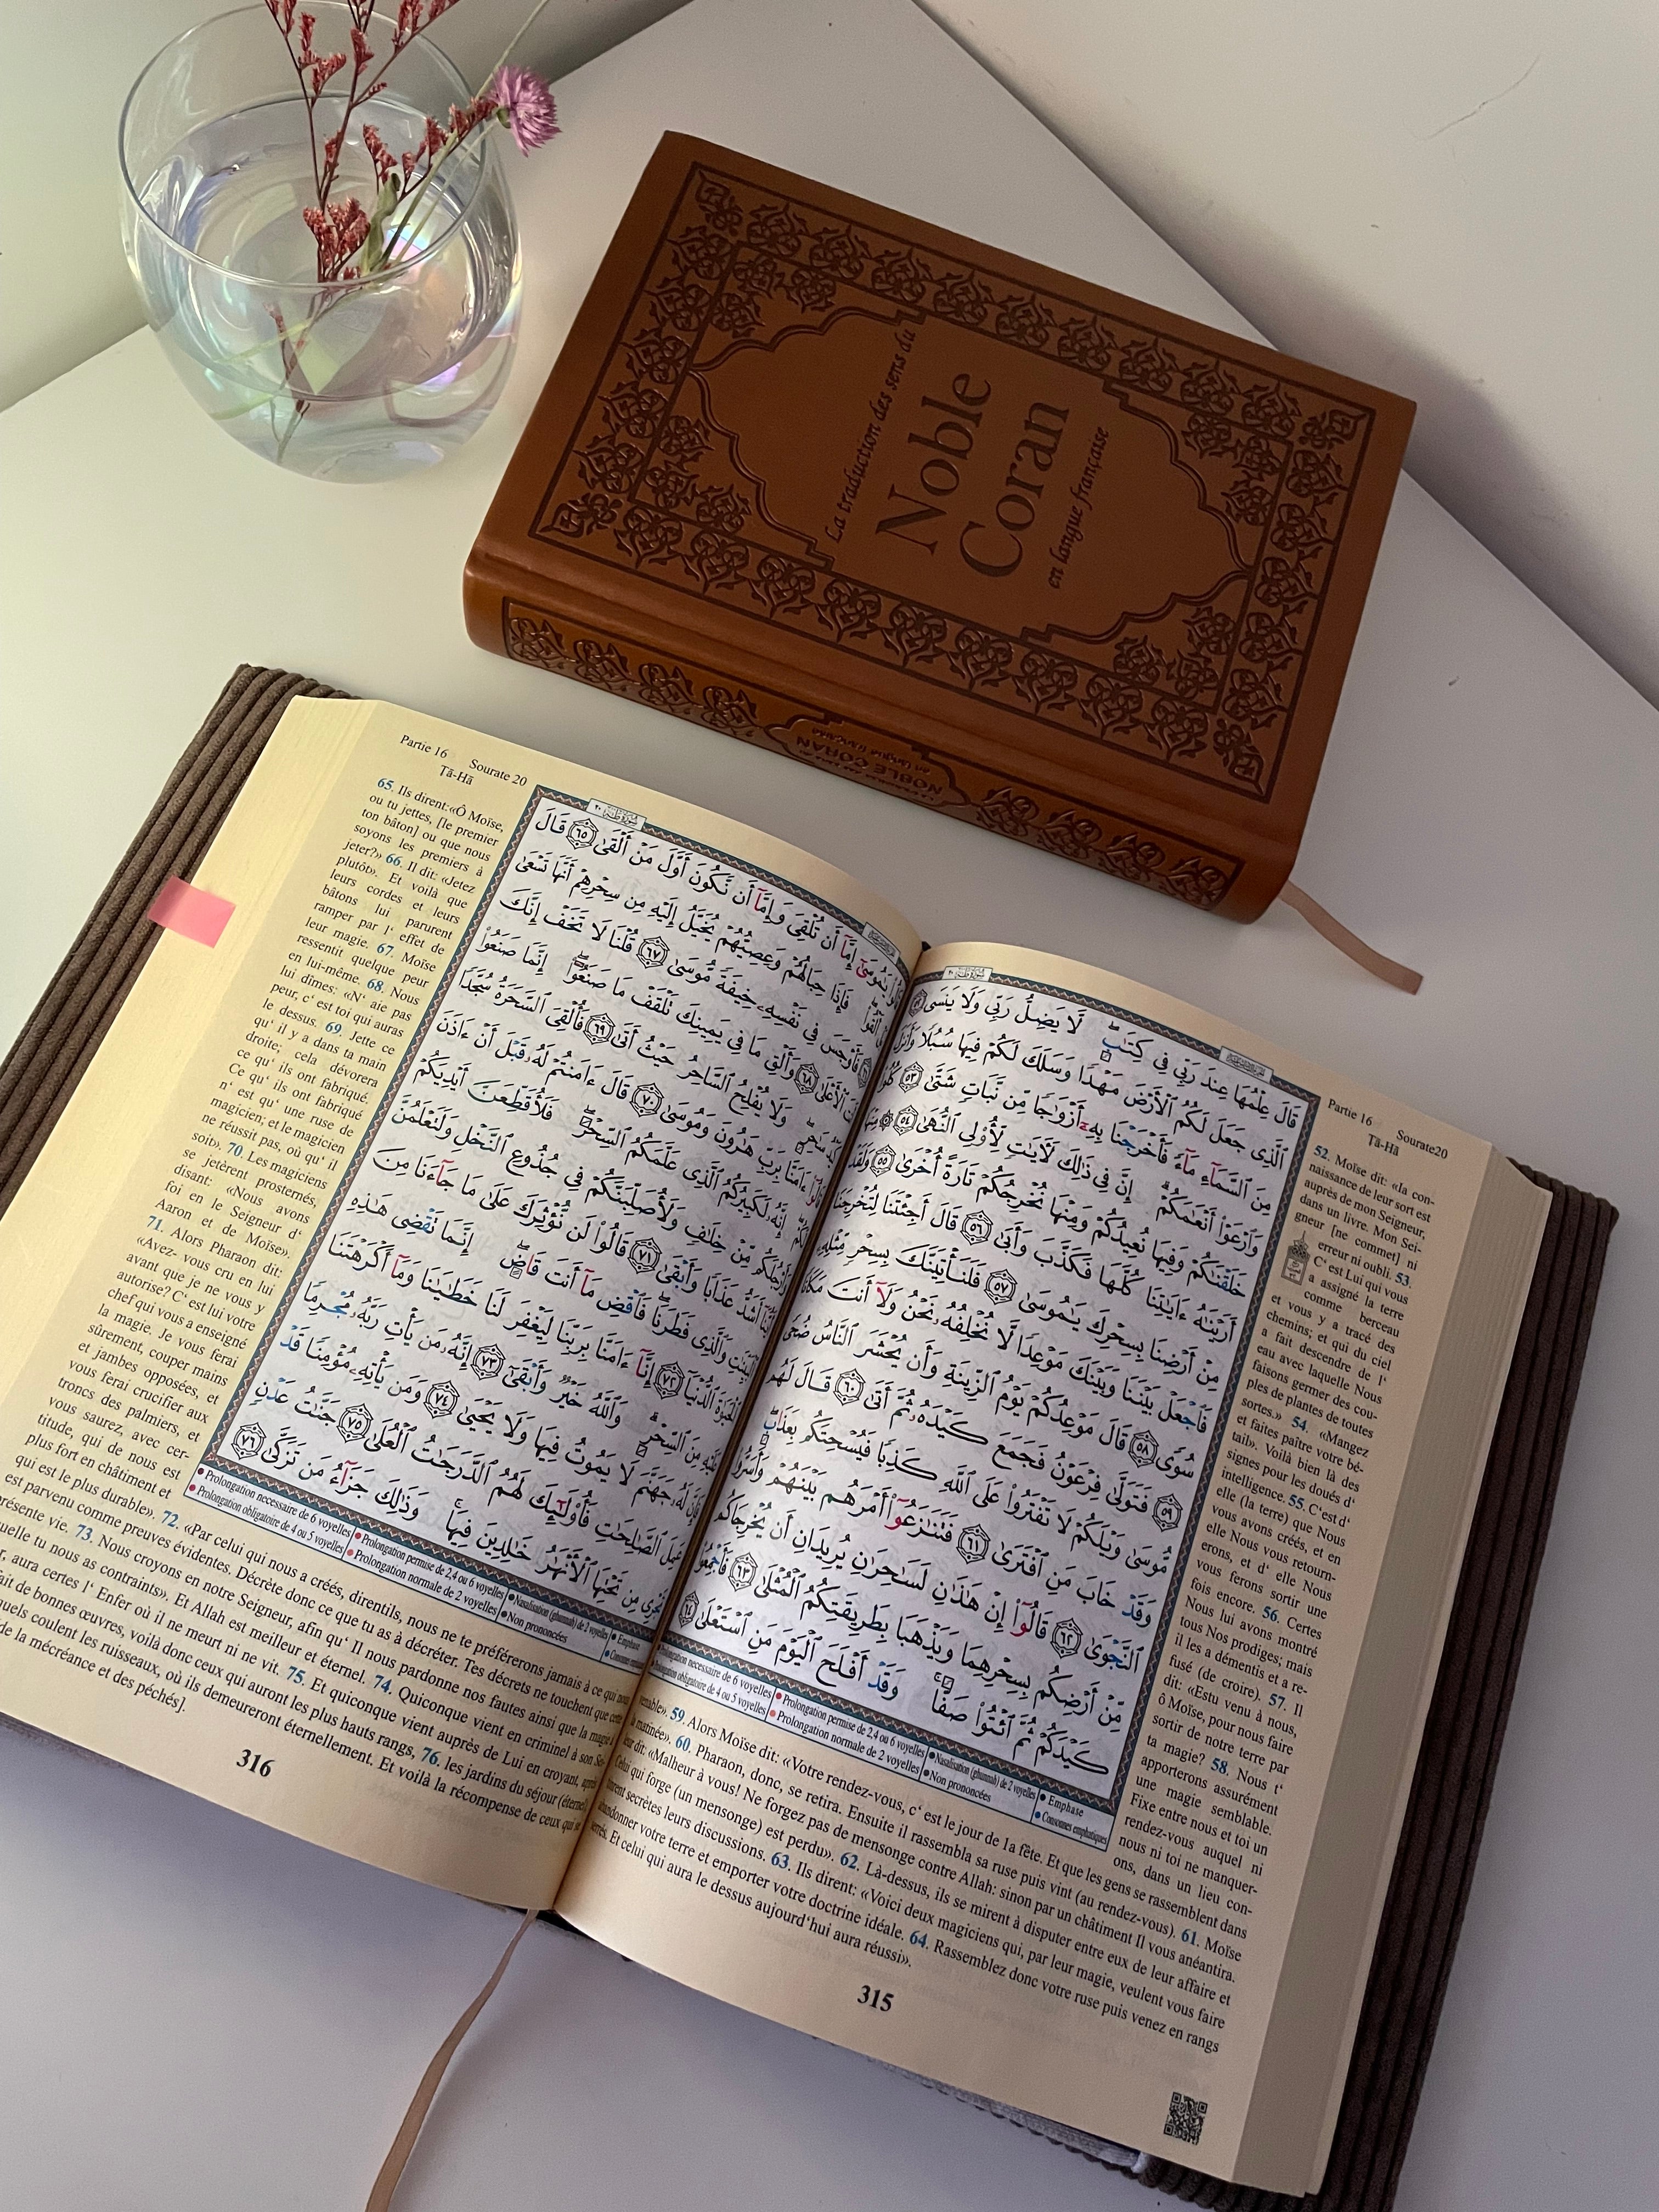 La traduction des sens du
Noble
Coran
en langue française
NOBLE CORAN
en langue française
Partie 16 Sourate20
Tā-Hā
قَالَ عِلْمُهَا عِندَ رَبِّى فِى كِتَٰبٍ لَّا يَضِلُّ رَبِّى وَلَا يَنسَى ٥٢
ٱلَّذِى جَعَلَ لَكُمُ ٱلْأَرْضَ مَهْدًا وَسَلَكَ لَكُمْ فِيهَا سُبُلًا وَأَنزَلَ
مِنَ ٱلسَّمَآءِ مَآءً فَأَخْرَجْنَا بِهِۦٓ أَزْوَٰجًا مِّن نَّبَاتٍ شَتَّىٰ ٥٣ كُلُوا۟
وَٱرْعَوْا۟ أَنْعَٰمَكُمْ إِنَّ فِى ذَٰلِكَ لَءَايَٰتٍ لِّأُو۟لِى ٱلنُّهَىٰ ٥٤ ۞ مِنْهَا
خَلَقْنَٰكُمْ وَفِيهَا نُعِيدُكُمْ وَمِنْهَا نُخْرِجُكُمْ تَارَةً أُخْرَىٰ ٥٥ وَلَقَدْ
أَرَيْنَٰهُ ءَايَٰتِنَا كُلَّهَا فَكَذَّبَ وَأَبَىٰ ٥٦ قَالَ أَجِئْتَنَا لِتُخْرِجَنَا
مِنْ أَرْضِنَا بِسِحْرِكَ يَٰمُوسَىٰ ٥٧ فَلَنَأْتِيَنَّكَ بِسِحْرٍ مِّثْلِهِۦ
فَٱجْعَلْ بَيْنَنَا وَبَيْنَكَ مَوْعِدًا لَّا نُخْلِفُهُۥ نَحْنُ وَلَآ أَنتَ مَكَانًا
سُوًى ٥٨ قَالَ مَوْعِدُكُمْ يَوْمُ ٱلزِّينَةِ وَأَن يُحْشَرَ ٱلنَّاسُ ضُحًى
٥٩ فَتَوَلَّىٰ فِرْعَوْنُ فَجَمَعَ كَيْدَهُۥ ثُمَّ أَتَىٰ ٦٠ قَالَ لَهُم
مُّوسَىٰ وَيْلَكُمْ لَا تَفْتَرُوا۟ عَلَى ٱللَّهِ كَذِبًا فَيُسْحِتَكُم بِعَذَابٍ
وَقَدْ خَابَ مَنِ ٱفْتَرَىٰ ٦١ فَتَنَٰزَعُوٓا۟ أَمْرَهُم بَيْنَهُمْ وَأَسَرُّوا۟
ٱلنَّجْوَىٰ ٦٢ قَالُوٓا۟ إِنْ هَٰذَٰنِ لَسَٰحِرَٰنِ يُرِيدَانِ أَن يُخْرِجَاكُم
مِّنْ أَرْضِكُم بِسِحْرِهِمَا وَيَذْهَبَا بِطَرِيقَتِكُمُ ٱلْمُثْلَىٰ ٦٣ فَأَجْمِعُوا۟
كَيْدَكُمْ ثُمَّ ٱئْتُوا۟ صَفًّا وَقَدْ أَفْلَحَ ٱلْيَوْمَ مَنِ ٱسْتَعْلَىٰ ٦٤
Prolongation necessaire de 6 voyelles Prolongation permise de 2,4 ou 6 voyelles Nasalisation (ghunnah) de 2 voyelles Emphase
Prolongation obligatoire de 4 ou 5 voyelles Prolongation normale de 2 voyelles Non prononcées Consonnes emphatiques
52. Moïse dit: «la con-
naissance de leur sort est
auprès de mon Seigneur,
dans un livre. Mon Sei-
gneur [ne commet] ni
erreur ni oubli. 53.
C' est Lui qui vous
a assigné la terre
comme berceau
et vous y a tracé des
chemins; et qui du ciel
a fait descendre de l'
eau avec laquelle Nous
faisons germer des cou-
ples de plantes de toutes
sortes.» 54. «Mangez
et faites paître votre bé-
tail». Voilà bien là des
signes pour les doués d'
intelligence. 55. C'est d'
elle (la terre) que Nous
vous avons créés, et en
elle Nous vous retourn-
erons, et d' elle Nous
vous ferons sortir une
fois encore. 56. Certes
Nous lui avons montré
tous Nos prodiges; mais
il les a démentis et a re-
fusé (de croire). 57. Il
dit: «Estu venu à nous,
ô Moïse, pour nous faire
sortir de notre terre par
ta magie? 58. Nous t'
apporterons assurément
une magie semblable.
Fixe entre nous et toi un
rendez-vous auquel ni
nous ni toi ne manquer-
ons, dans un lieu con-
venable». 59. Alors Moïse dit: «Votre rendez-vous, c' est le jour de la fête. Et que les gens se rassemblent dans
la matinée». 60. Pharaon, donc, se retira. Ensuite il rassembla sa ruse puis vint (au rendez-vous). 61. Moïse
leur dit: «Malheur à vous! Ne forgez pas de mensonge contre Allah: sinon par un châtiment Il vous anéantira.
Celui qui forge (un mensonge) est perdu». 62. Là-dessus, ils se mirent à disputer entre eux de leur affaire et
tinrent secrètes leurs discussions. 63. Ils dirent: «Voici deux magiciens qui, par leur magie, veulent vous faire
abandonner votre terre et emporter votre doctrine idéale. 64. Rassemblez donc votre ruse puis venez en rangs
serrés. Et celui qui aura le dessus aujourd'hui aura réussi».
315
Partie 16 Sourate 20
Tā-Hā
قَالُوا۟ يَٰمُوسَىٰٓ إِمَّآ أَن تُلْقِىَ وَإِمَّآ أَن نَّكُونَ أَوَّلَ مَنْ أَلْقَىٰ ٦٥ قَالَ
بَلْ أَلْقُوا۟ فَإِذَا حِبَالُهُمْ وَعِصِيُّهُمْ يُخَيَّلُ إِلَيْهِ مِن سِحْرِهِمْ أَنَّهَا تَسْعَىٰ
٦٦ فَأَوْجَسَ فِى نَفْسِهِۦ خِيفَةً مُّوسَىٰ ٦٧ قُلْنَا لَا تَخَفْ إِنَّكَ
أَنتَ ٱلْأَعْلَىٰ ٦٨ وَأَلْقِ مَا فِى يَمِينِكَ تَلْقَفْ مَا صَنَعُوٓا۟ إِنَّمَا صَنَعُوا۟
كَيْدُ سَٰحِرٍ وَلَا يُفْلِحُ ٱلسَّاحِرُ حَيْثُ أَتَىٰ ٦٩ فَأُلْقِىَ ٱلسَّحَرَةُ سُجَّدًا
قَالُوٓا۟ ءَامَنَّا بِرَبِّ هَٰرُونَ وَمُوسَىٰ ٧٠ قَالَ ءَامَنتُمْ لَهُۥ قَبْلَ أَنْ ءَاذَنَ
لَكُمْ إِنَّهُۥ لَكَبِيرُكُمُ ٱلَّذِى عَلَّمَكُمُ ٱلسِّحْرَ فَلَأُقَطِّعَنَّ أَيْدِيَكُمْ
وَأَرْجُلَكُم مِّنْ خِلَٰفٍ وَلَأُصَلِّبَنَّكُمْ فِى جُذُوعِ ٱلنَّخْلِ وَلَتَعْلَمُنَّ
أَيُّنَآ أَشَدُّ عَذَابًا وَأَبْقَىٰ ٧١ قَالُوا۟ لَن نُّؤْثِرَكَ عَلَىٰ مَا جَآءَنَا مِنَ
ٱلْبَيِّنَٰتِ وَٱلَّذِى فَطَرَنَا فَٱقْضِ مَآ أَنتَ قَاضٍ إِنَّمَا تَقْضِى هَٰذِهِ
ٱلْحَيَوٰةَ ٱلدُّنْيَآ ٧٢ إِنَّآ ءَامَنَّا بِرَبِّنَا لِيَغْفِرَ لَنَا خَطَٰيَٰنَا وَمَآ أَكْرَهْتَنَا
عَلَيْهِ مِنَ ٱلسِّحْرِ وَٱللَّهُ خَيْرٌ وَأَبْقَىٰٓ ٧٣ إِنَّهُۥ مَن يَأْتِ رَبَّهُۥ مُجْرِمًا
فَإِنَّ لَهُۥ جَهَنَّمَ لَا يَمُوتُ فِيهَا وَلَا يَحْيَىٰ ٧٤ وَمَن يَأْتِهِۦ مُؤْمِنًا قَدْ
عَمِلَ ٱلصَّٰلِحَٰتِ فَأُو۟لَٰٓئِكَ لَهُمُ ٱلدَّرَجَٰتُ ٱلْعُلَىٰ ٧٥ جَنَّٰتُ عَدْنٍ
تَجْرِى مِن تَحْتِهَا ٱلْأَنْهَٰرُ خَٰلِدِينَ فِيهَا وَذَٰلِكَ جَزَآءُ مَن تَزَكَّىٰ ٧٦
Prolongation necessaire de 6 voyelles Prolongation permise de 2,4 ou 6 voyelles Nasalisation (ghunnah) de 2 voyelles Emphase
Prolongation obligatoire de 4 ou 5 voyelles Prolongation normale de 2 voyelles Non prononcées
65. Ils dirent: «Ô Moïse,
ou tu jettes, [le premier
ton bâton] ou que nous
soyons les premiers à
jeter?» 66. Il dit: «Jetez
plutôt». Et voilà que
leurs cordes et leurs
bâtons lui parurent
ramper par l' effet de
leur magie. 67. Moïse
ressentit quelque peur
en lui-même. 68. Nous
lui dîmes: «N' aie pas
peur, c' est toi qui auras
le dessus. 69. Jette ce
qu' il y a dans ta main
droite; cela dévorera
ce qu' ils ont fabriqué.
Ce qu' ils ont fabriqué
n' est qu' une ruse de
magicien; et le magicien
ne réussit pas, où qu' il
soit». 70. Les magiciens
se jetèrent prosternés,
disant: «Nous avons
foi en le Seigneur d'
Aaron et de Moïse».
71. Alors Pharaon dit:
«Avez- vous cru en lui
avant que je ne vous y
autorise? C' est lui votre
chef qui vous a enseigné
la magie. Je vous ferai
sûrement, couper mains
et jambes opposées, et
vous ferai crucifier aux
troncs des palmiers, et
vous saurez, avec cer-
titude, qui de nous est
plus fort en châtiment et
qui est le plus durable». 72. «Par celui qui nous a créés, direntils, nous ne te préférerons jamais à ce qui nous
est parvenu comme preuves évidentes. Décrète donc ce que tu as à décréter. Tes décrets ne touchent que cette
présente vie. 73. Nous croyons en notre Seigneur, afin qu' Il nous pardonne nos fautes ainsi que la magie à
quelle tu nous as contraints». Et Allah est meilleur et éternel. 74. Quiconque vient en criminel à son Sei-
aura certes l' Enfer où il ne meurt ni ne vit. 75. Et quiconque vient auprès de Lui en croyant, après
fait de bonnes œuvres, voilà donc ceux qui auront les plus hauts rangs, 76. les jardins du séjour (éternel)
quels coulent les ruisseaux, où ils demeureront éternellement. Et voilà la récompense de ceux qui se
de la mécréance et des péchés].
316